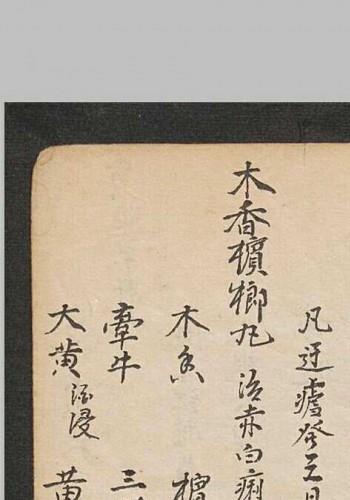 凡瘧發三日
木香檳榔丸 治赤白痢
木香 檳
牽牛 三
大黄酒浸 黄